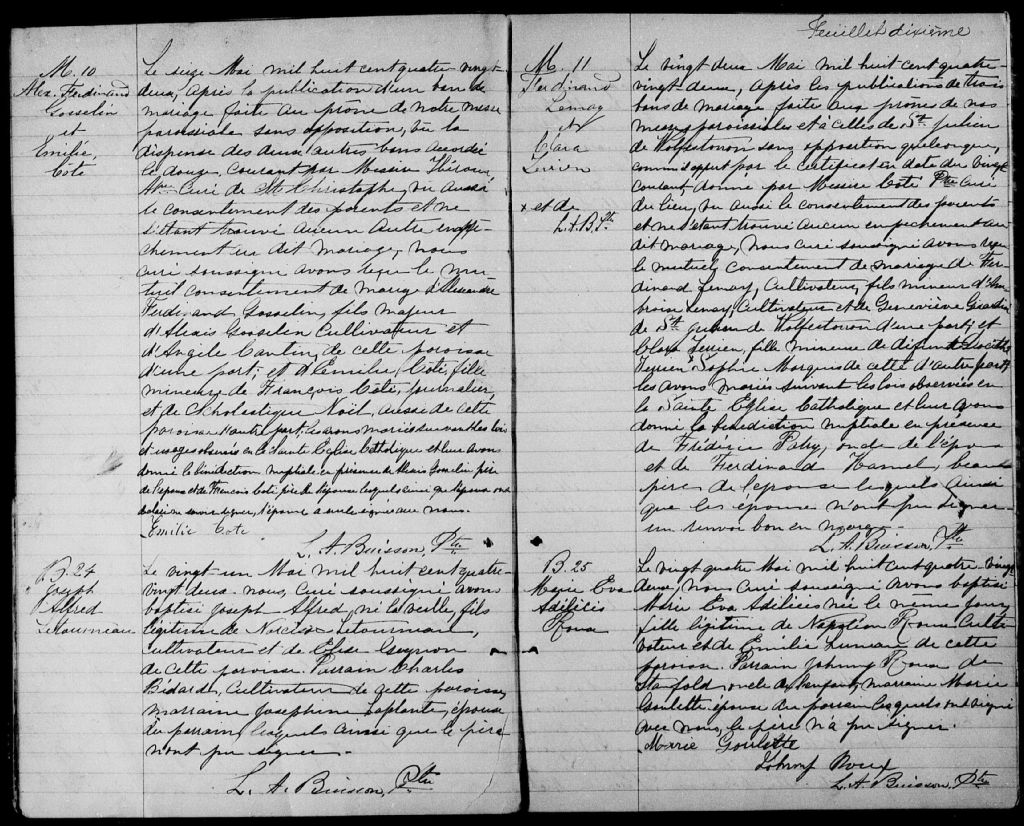 M. 10
Alex. Ferdinand
Gosselin
et
Emilie
Coté
Le seize Mai mil huit cent quatre vingt-
deux, après la publication d'un ban de
mariage faite au prône de notre messe
paroissiale sans opposition, vu la
dispense des deux autres bans accordée
le douze courant par Messire Héroux,
Curé de St Christophe, vu aussi
le consentement des parents et ne
s'étant trouvé aucun autre empê-
chement au dit mariage, nous
curé soussigné avons reçu le mu-
tuel consentement de mariage d'Alexandre
Ferdinand Gosselin, fils majeur
d'Alexis Gosselin Cultivateur et
d'Angèle Cantin, de cette paroisse
d'une part; et d'Emilie Coté, fille
mineure de François Coté, journalier,
et de Scholastique Noël, aussi de cette
paroisse d'autre part; les avons mariés suivant les lois
et usages observés en la Sainte Eglise Catholique et leur avons
donné la bénédiction nuptiale en présence de Alexis Gosselin, père
de l'époux et de François Coté, père de l'épouse lesquels ainsi que l'époux ont
déclaré ne savoir signer, l'épouse a seule signé avec nous.
Emilie Cote
L. A. Buisson, Ptre
B. 24
Joseph
Alfred
Letourneau
Le vingt un Mai mil huit cent quatre-
vingt deux, nous, curé soussigné avons
baptisé Joseph Alfred, né la veille, fils
légitime de Narcisse Letourneau,
cultivateur et de Elise Gagnon
de cette paroisse. Parrain Charles
Bédard, Cultivateur de cette paroisse,
marraine Josephine Laplante, épouse
du parrain, lesquels ainsi que le père
n'ont pu signer.
L. A. Buisson, Ptre
Feuillet dixième
M. 11
Ferdinand
Lemay
et
Clara
x et de
L.A.B. Ptr
Le vingt deux Mai mil huit cent quatre-
vingt-deux, après les publications de trois
bans de mariage faite aux prônes de nos
messes paroissiales et à celles de St. Julien
de Wolfestown sans opposition quelconque,
comme appert par le certificat en date du vingt
courant donné par Messire Coté Ptre Curé
du lieu, vu aussi le consentement des parents
et ne s'étant trouvé aucun empêchement au
dit mariage, nous curé soussigné avons reçu
le mutuel consentement de mariage de Fer-
dinand Lemay, Cultivateur, fils mineur d'Am-
broise Lemay, Cultivateur et de Geneviève
de St. Julien de Wolfestown d'une part; et
Clara fille mineure de défunt
Sophie Marquis de cette d'autre part;
les avons mariés suivant les lois observées en
la Sainte Eglise Catholique et leur avons
donné la bénédiction nuptiale en présence
de Frédéric oncle de l'époux
et de Ferdinand Hamel, beau
père de l'épouse lesquels ainsi
que les époux n'ont pu signer
un renvoi bon en marge.
L. A. Buisson, Ptre
B. 25
Marie Eva
Adilicis
Roux
Le vingt quatre Mai mil huit cent quatre vingt
deux, nous curé soussigné avons baptisé
Marie Eva Adilicis née le même jour,
fille légitime de Napoléon Roux Culti-
vateur et de Emilie de cette
paroisse. Parrain Johnny Roux de
Stanfold, oncle de l'enfant, marraine Marie
Goulette épouse du parrain lesquels ont signé
avec nous, le père n'a pu signer.
Marie Goulette
Johnny Roux
L. A. Buisson, Ptre